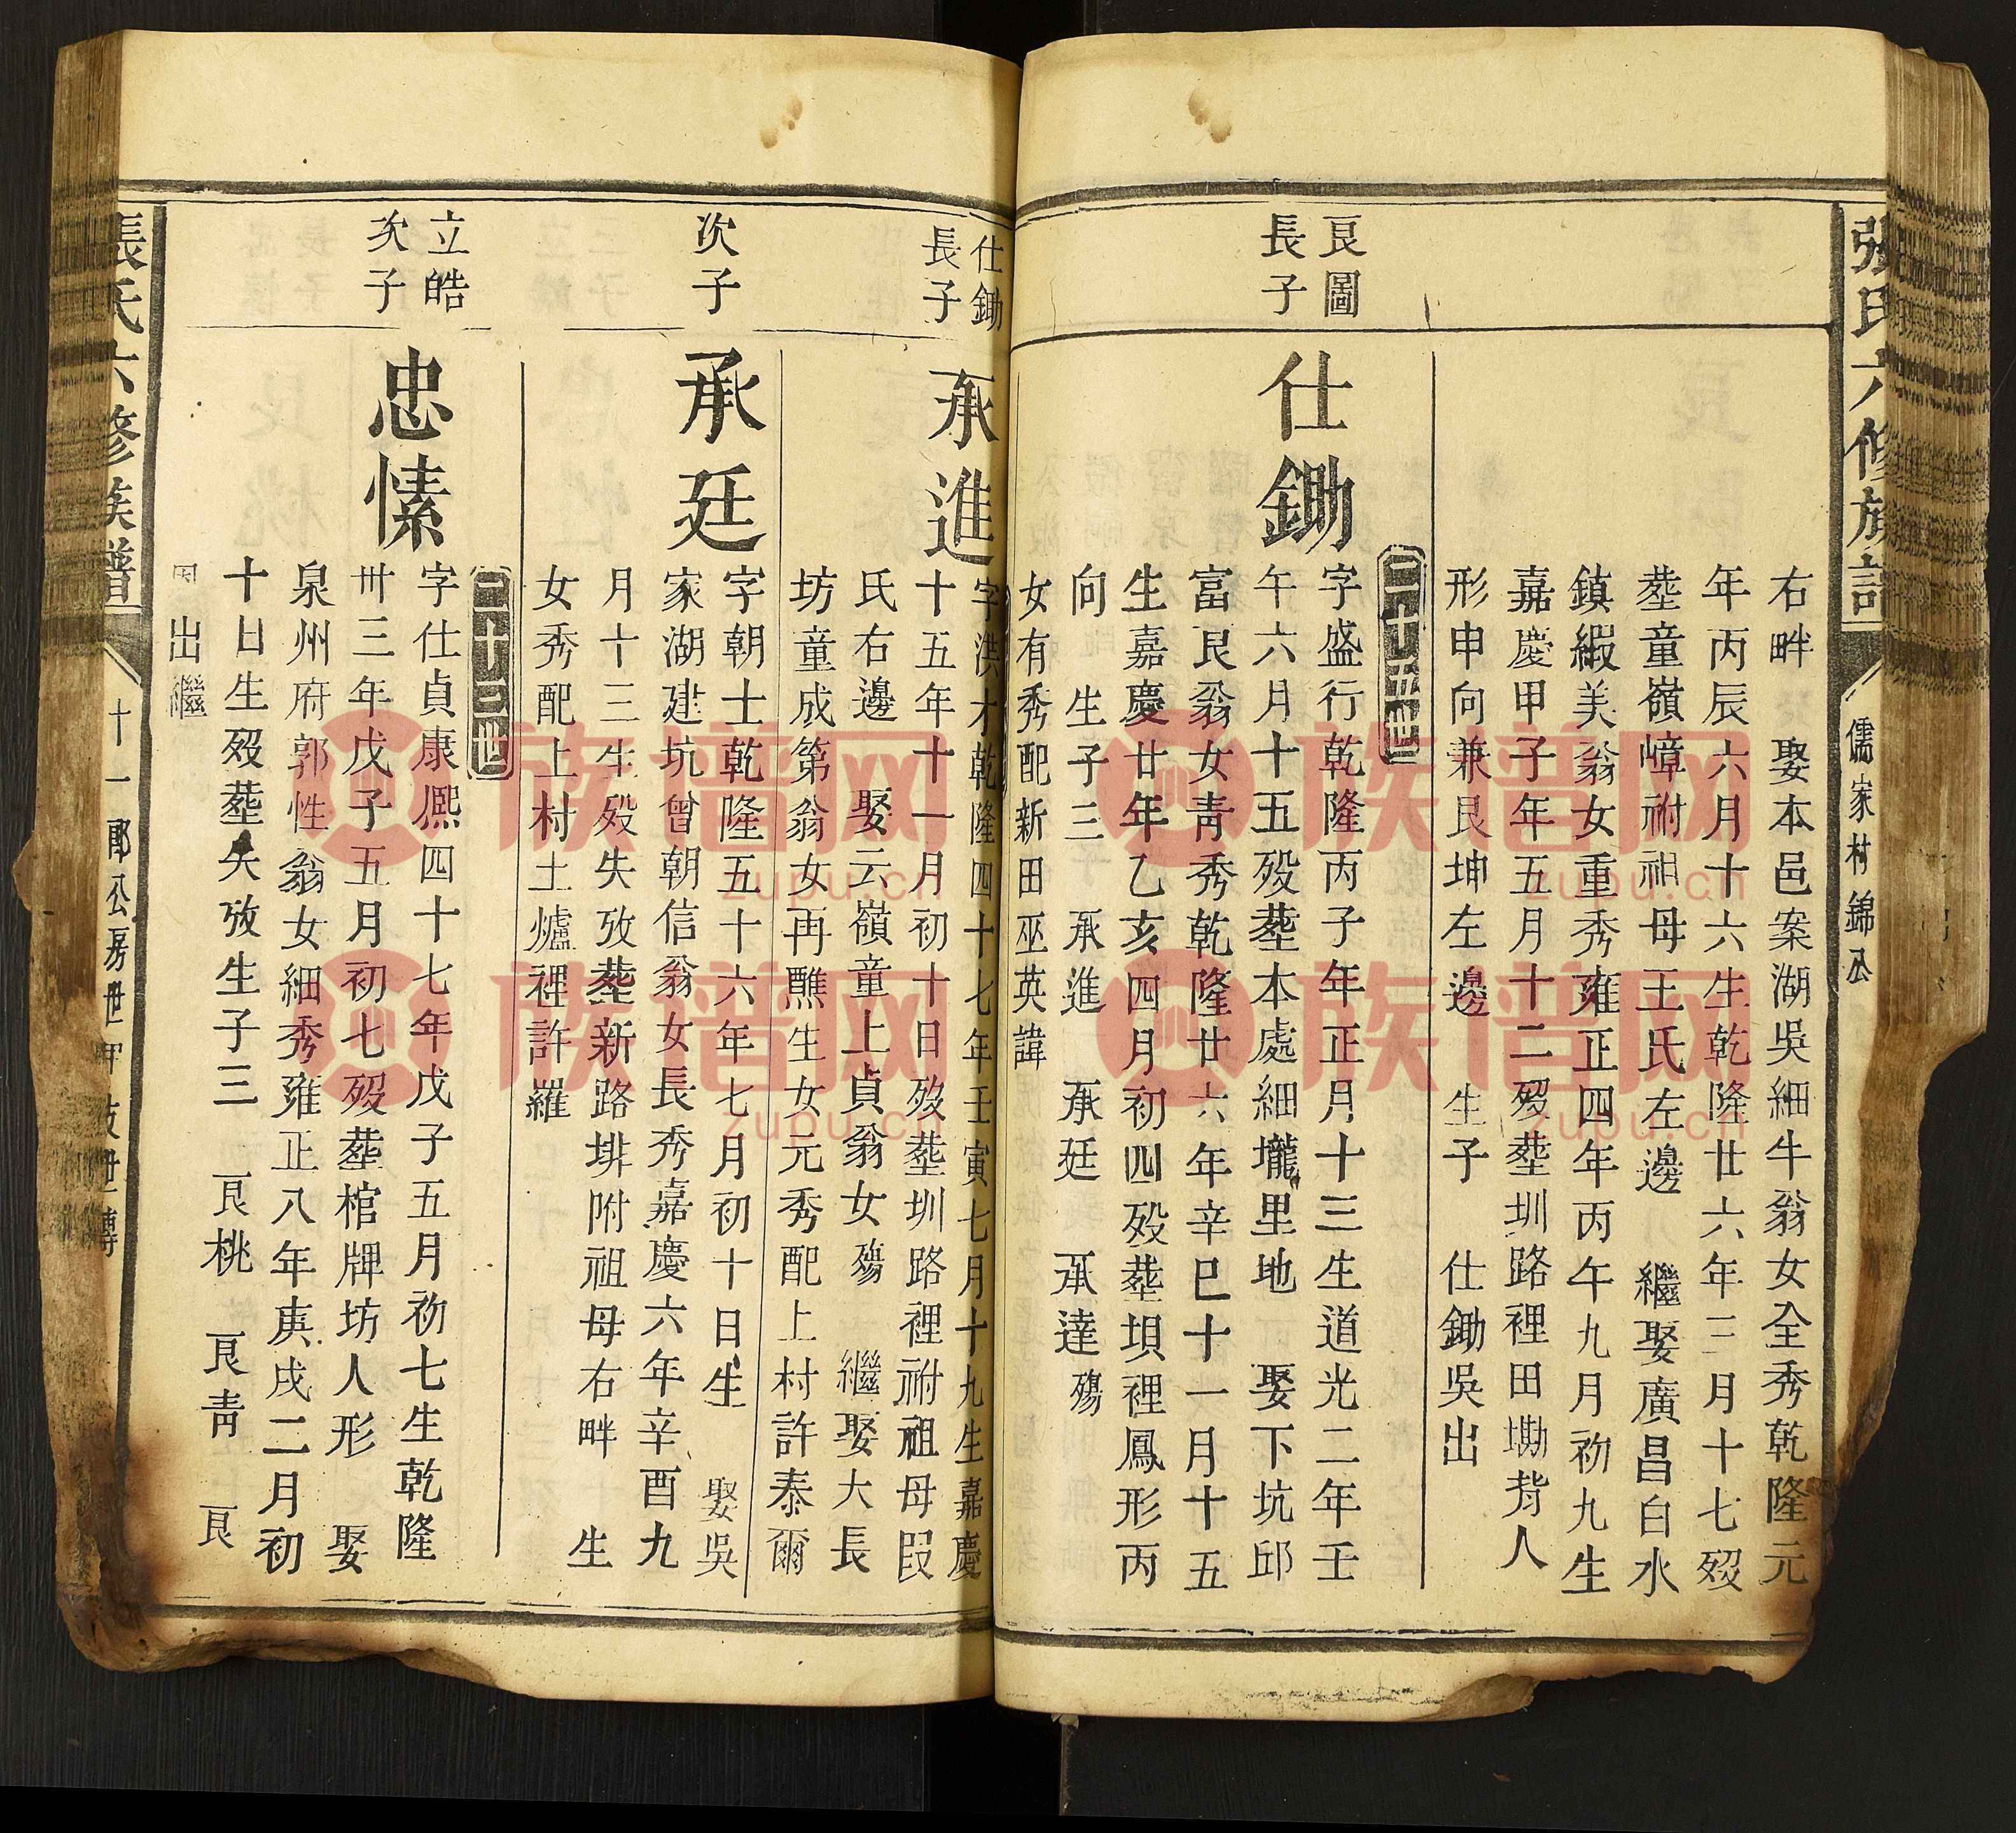 張氏六修族譜
儒家村錦公
右畔　娶本邑案湖吳細牛翁女全秀乾隆元
年丙辰六月十六生乾隆廿六年三月十七歿
塟童嶺嶂祔祖母王氏左邊　繼娶廣昌白水
鎮緞美翁女重秀雍正四年丙午九月初九生
嘉慶甲子年五月十二歿塟圳路裡田墈背人
形申向兼艮坤左邊　生子　仕鋤吳出
二十五世
艮圖
長子
仕鋤
字盛行乾隆丙子年正月十三生道光二年壬
午六月十五歿塟本處細壠里地　娶下坑邱
富艮翁女靑秀乾隆廿六年辛巳十一月十五
生嘉慶廿年乙亥四月初四歿塟垻裡鳳形丙
向　生子三　承進　承廷　承達殤
女有秀配新田巫英諱
仕鋤
長子
承進
字洪才乾隆四十七年壬寅七月十九生嘉慶
十五年十一月初十日歿塟圳路裡祔祖母叚
氏右邊　娶云嶺童上貞翁女殤　繼娶大長
坊童成第翁女再醮生女元秀配上村許泰爾
次子
承廷
字朝士乾隆五十六年七月初十日生　娶吳
家湖建坑曾朝信翁女長秀嘉慶六年辛酉九
月十三生歿失攷塟新路排附祖母右畔　生
女秀配上村土爐裡許羅
二十三世
立皓
次子
忠愫
字仕貞康熈四十七年戊子五月初七生乾隆
卅三年戊子五月初七歿塟棺牌坊人形　娶
泉州府郭性翁女細秀雍正八年庚戌二月初
十日生歿塟失攷生子三　艮桃　艮靑　艮
出繼
張氏六修族譜
十一郎公房世